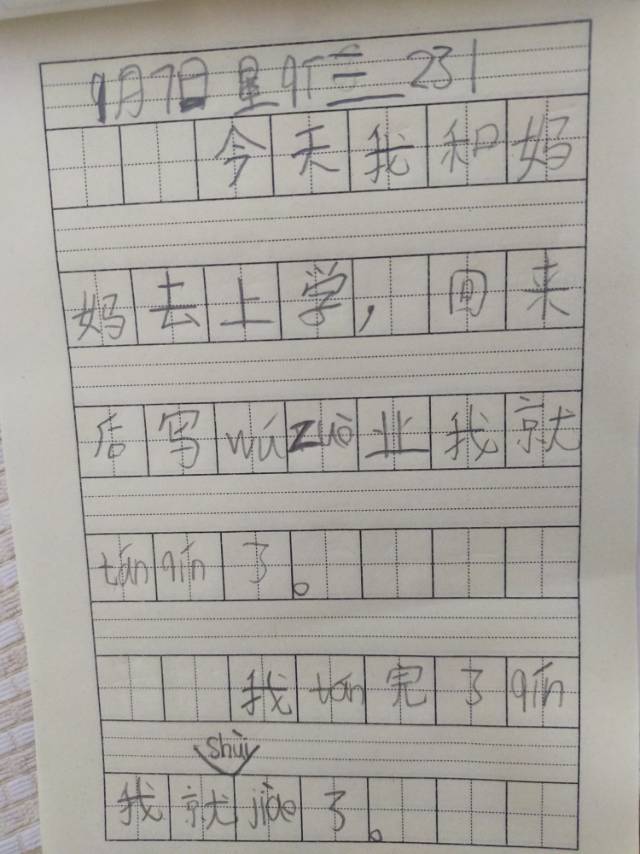 9月7日 星期三 231
今天我和妈
妈去上学，回来
后写wúzuò业我就
tánqín了。
我tán完了qín
shùi
我就jiào了。